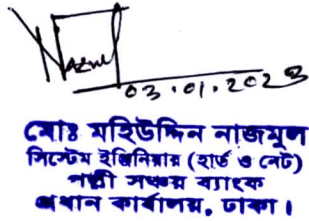 Nazmul
03.01.2023
মোঃ মহিউদ্দিন নাজমুল
সিস্টেম ইঞ্জিনিয়ার (হার্ড ও নেট)
পল্লী সঞ্চয় ব্যাংক
প্রধান কার্যালয়, ঢাকা।